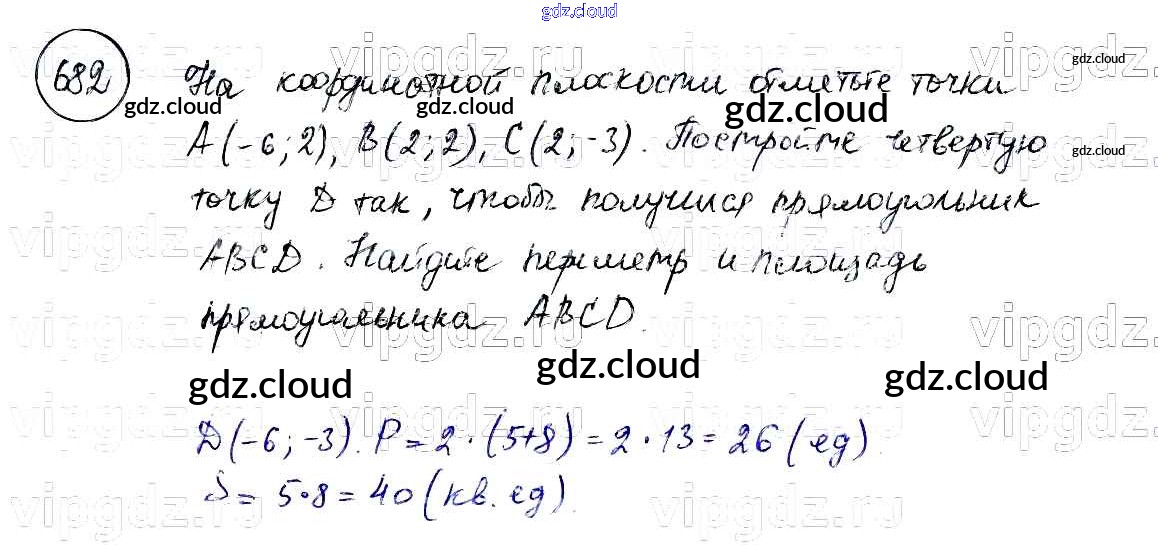 gdz.cloud
gdz.cloud
682 На координатной плоскости отметьте точки
gdz.cloud
gdz.cloud gdz.cloud gdz.cloud
А(-6;2), В(2;2), С(2;-3). Постройте четвертую
gdz.cloud
точку D так, чтобы получился прямоугольник
ABCD. Найдите периметр и площадь
прямоугольника ABCD.
vipgdz.ru vipgdz.ru vipgdz.ru vipgdz.ru
gdz.cloud gdz.cloud gdz.cloud
D(-6;-3). P = 2·(5+8) = 2·13 = 26 (ед)
S = 5·8 = 40 (кв. ед).